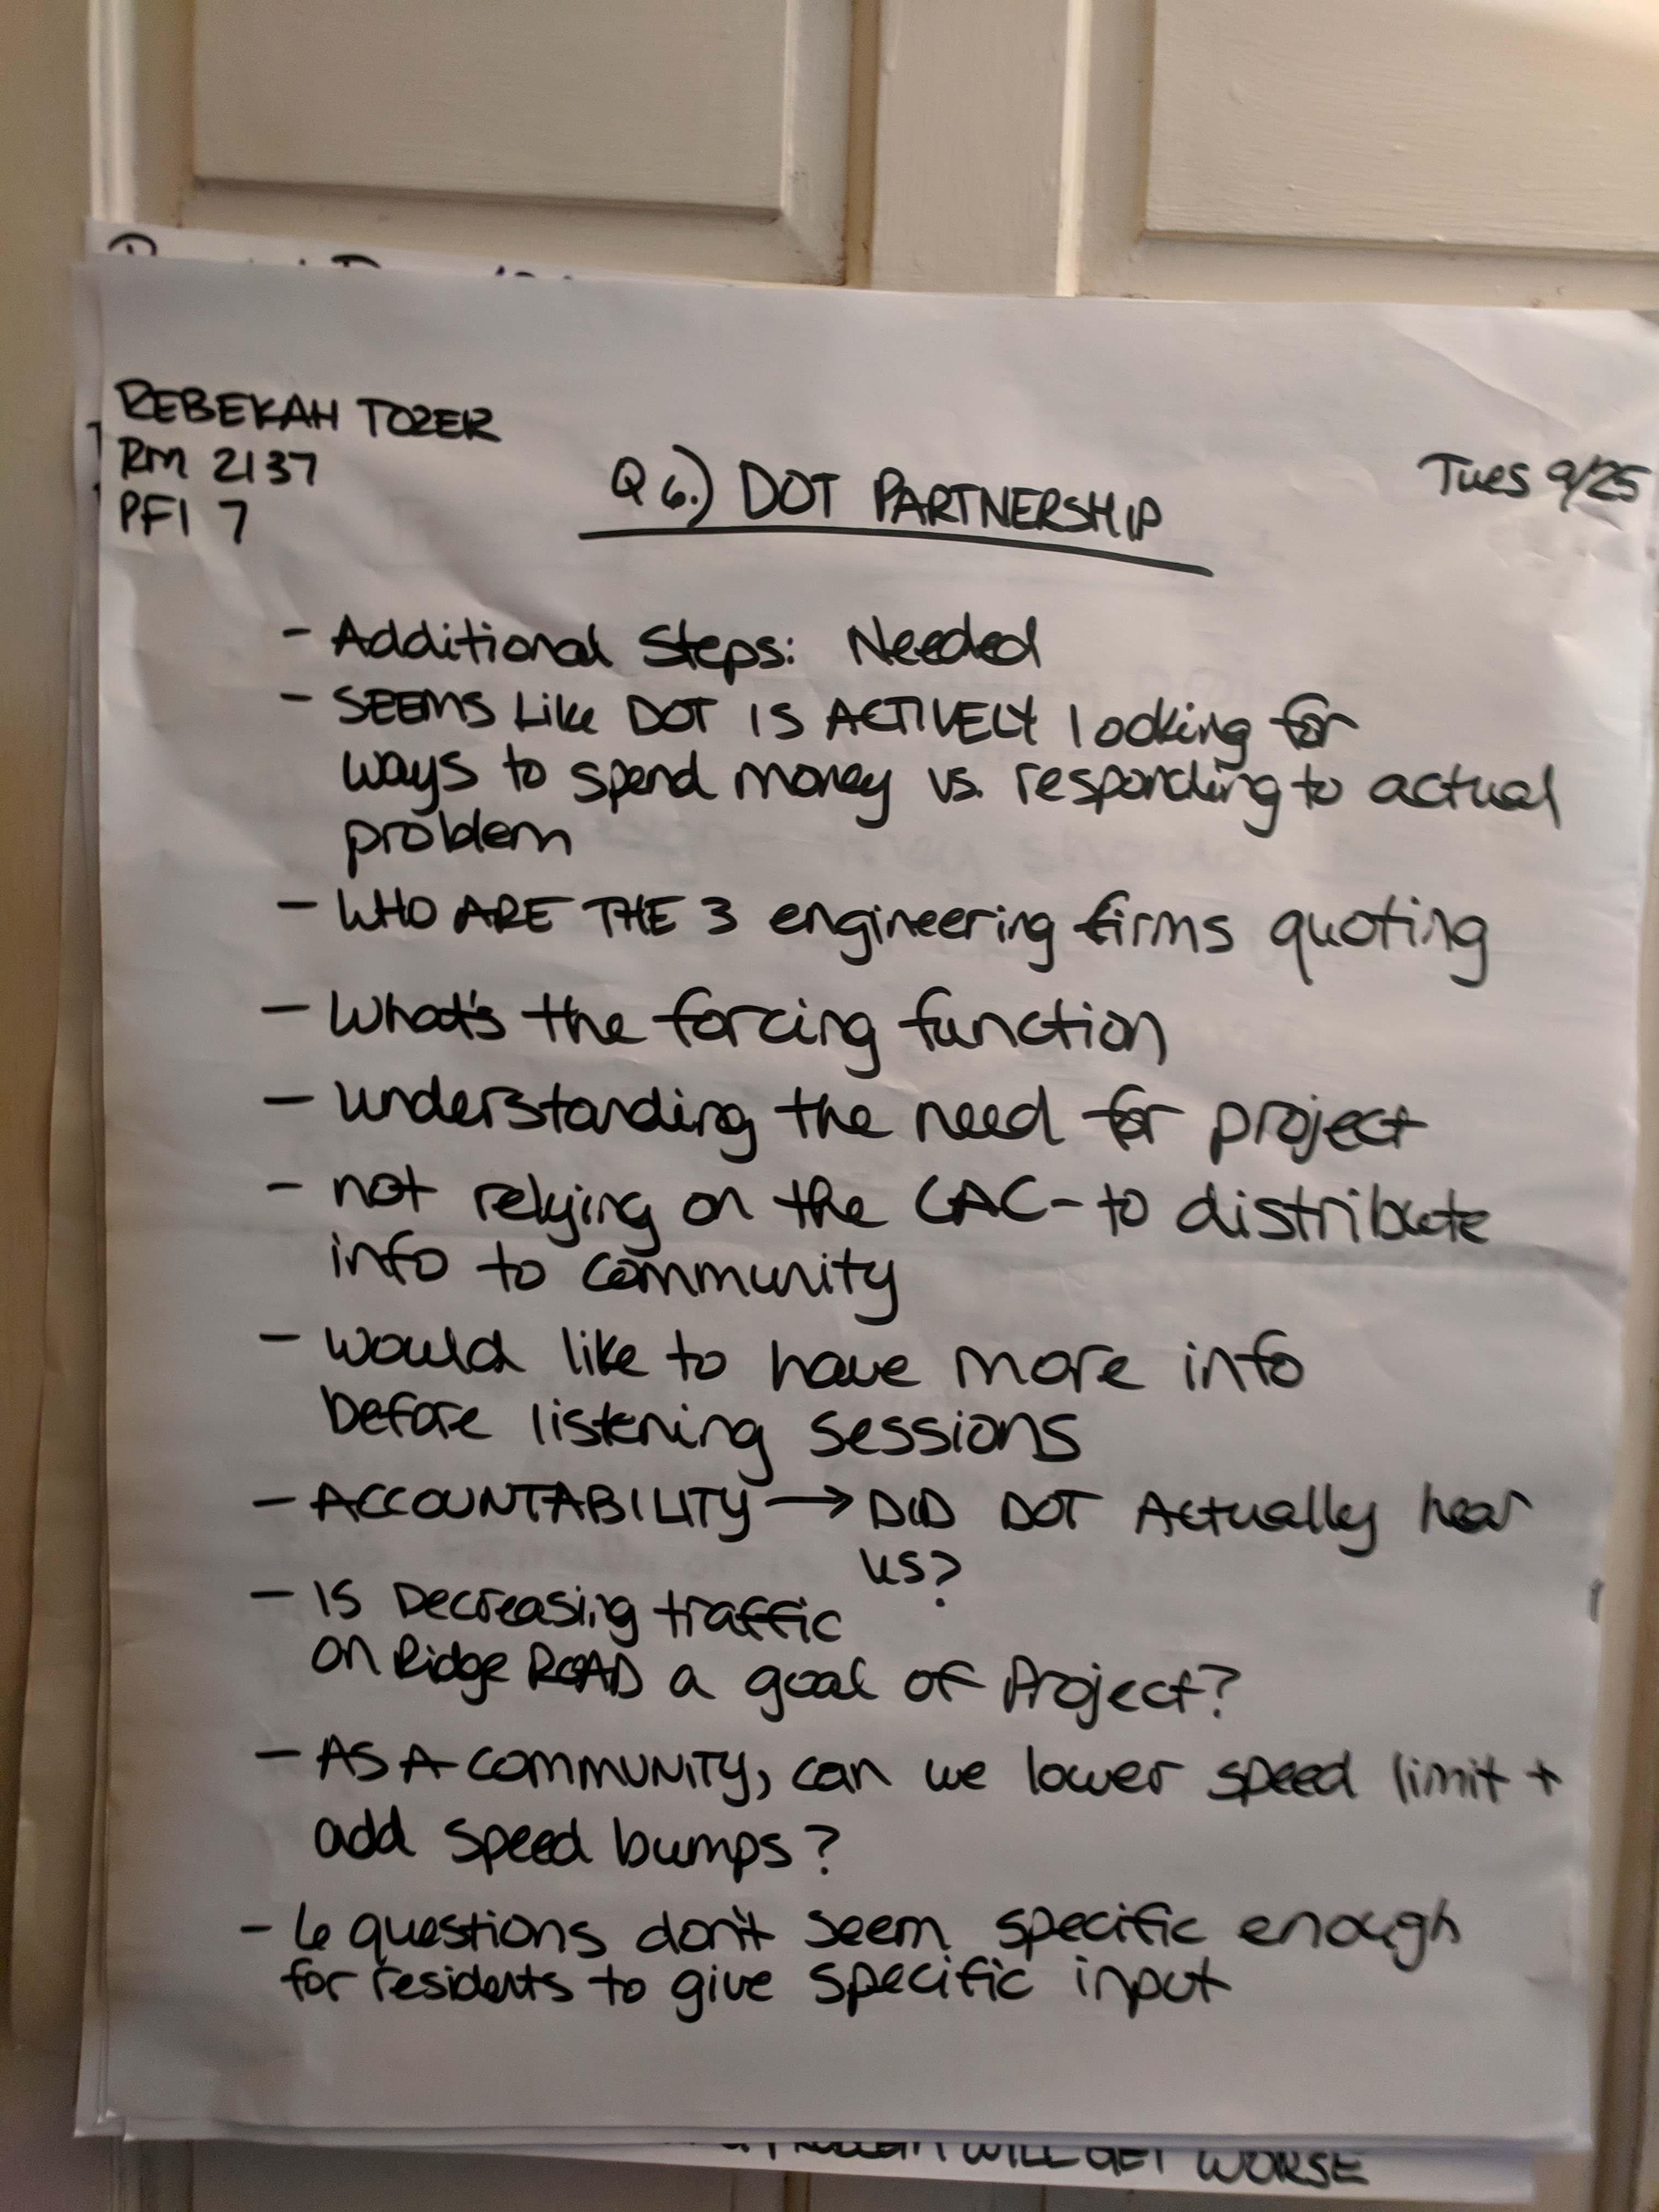 REBEKAH TOZER
RM 2137
PFI 7
Tues 9/25
Q6.) DOT PARTNERSHIP
- Additional Steps: Needed
- SEEMS Like DOT IS ACTIVELY looking for
ways to spend money vs. responding to actual
problem
- WHO ARE THE 3 engineering firms quoting
- What's the forcing function
- understanding the need for project
- not relying on the CAC - to distribute
info to community
- would like to have more info
before listening sessions
- ACCOUNTABILITY → DID DOT Actually hear
us?
- IS Decreasing traffic
on Ridge ROAD a goal of Project?
- AS A COMMUNITY, can we lower speed limit +
add speed bumps?
- 6 questions don't seem specific enough
for residents to give specific input
WILL GET WORSE